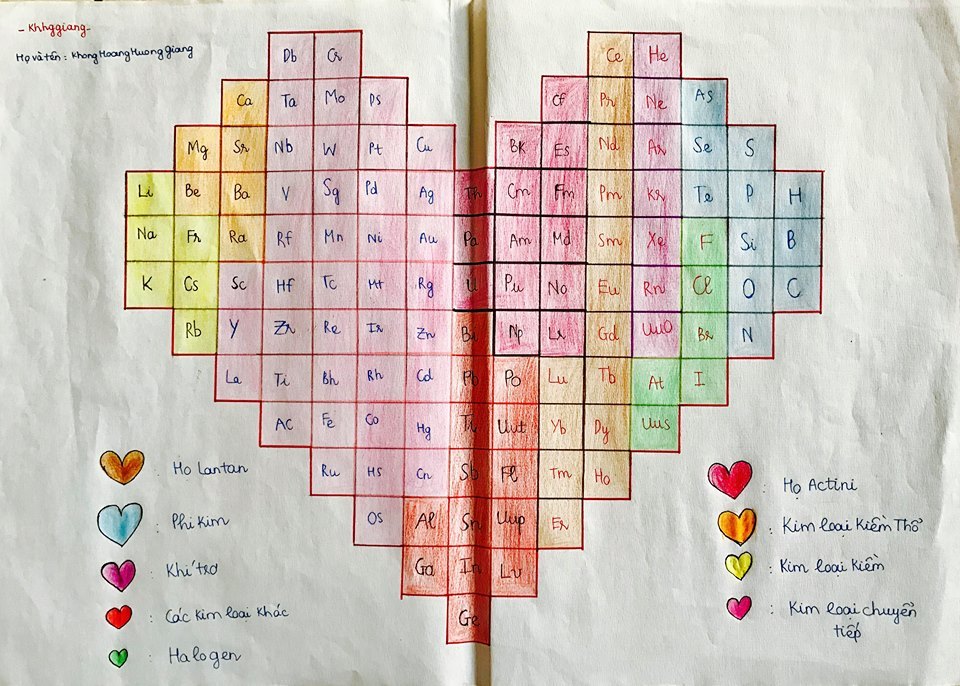 - Khhggiang -
Họ và tên : Khong Hoang Huong Giang
Db Cr Ce He
Ca Ta Mo Ds Cf Pr Ne As
Mg Sr Nb W Pt Cu BK Es Nd Ar Se S
Li Be Ba V Sg Pd Ag Th Cm Fm Pm Kr Te P H
Na Fr Ra Rf Mn Ni Au Pa Am Md Sm Xe F Si B
K Cs Sc Hf Tc Mt Rg U Pu No Eu Rn Cl O C
Rb Y Zr Re Ir Zn Bi Np Lr Gd UuO Br N
La Ti Bh Rh Cd Pb Po Lu Tb At I
AC Fe Co Hg Tl Uut Yb Dy Uus
Ru HS Cn Sb Fl Tm Ho
OS Al Sn Uup Er
Ga In Lv
Ge
: Họ Lantan
: Phi Kim
: Khí trơ
: Các kim loại khác
: Halogen
: Họ Actini
: Kim loại Kiềm Thổ
: Kim loại kiềm
: Kim loại chuyển
tiếp